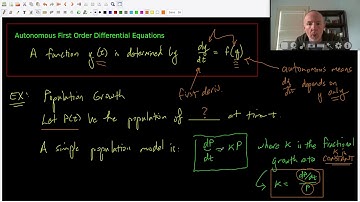 Autonomous First Order Differential Equations
A function y(t) is determined by dy/dt = f(y)
first deriv.
autonomous means
dy/dt depends on
y only
EX: Population Growth
Let P(t) be the population of ? at time t.
A simple population model is: dP/dt = KP
where K is the fractional
growth rate
K is
constant
K = (dP/dt)/P